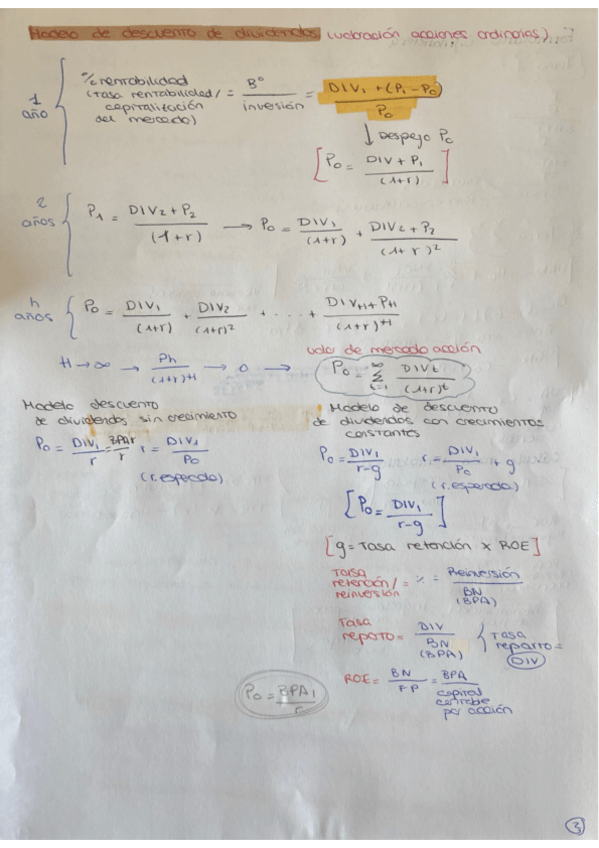 Modelo de descuento de dividendos (valoración acciones ordinarias).
1 año
% rentabilidad (tasa rentabilidad/ capitalización del mercado) = Bº / inversión = DIV₁ + (P₁ - P₀) / P₀
↓ Despejo P₀
[P₀ = DIV + P₁ / (1+r)]
2 años
P₁ = DIV₂ + P₂ / (1+r) → P₀ = DIV₁ / (1+r) + DIV₂ + P₂ / (1+r)²
h años
P₀ = DIV₁ / (1+r) + DIV₂ / (1+r)² + ... + DIV_H + P_H / (1+r)^H
H → ∞ → Ph / (1+r)^H → 0 →
valor de mercado acción
P₀ = ∞ Σ t=1 DIVt / (1+r)^t
Modelo descuento
de dividendos sin crecimiento
P₀ = DIV₁ / r = BPA₁ / r
r = DIV₁ / P₀
(r. esperado)
Modelo de descuento
de dividendos con crecimientos
constantes
P₀ = DIV₁ / r-g
r = DIV₁ / P₀ + g
(r. esperado)
[P₀ = DIV₁ / r-g]
[g = Tasa retención x ROE]
Tasa retención/ reinversión = % = Reinversión / BN (BPA)
Tasa reparto = DIV / BN (BPA)
Tasa reparto = DIV
ROE = BN / FP = BPA / capital contable por acción
P₀ = BPA₁ / r
3